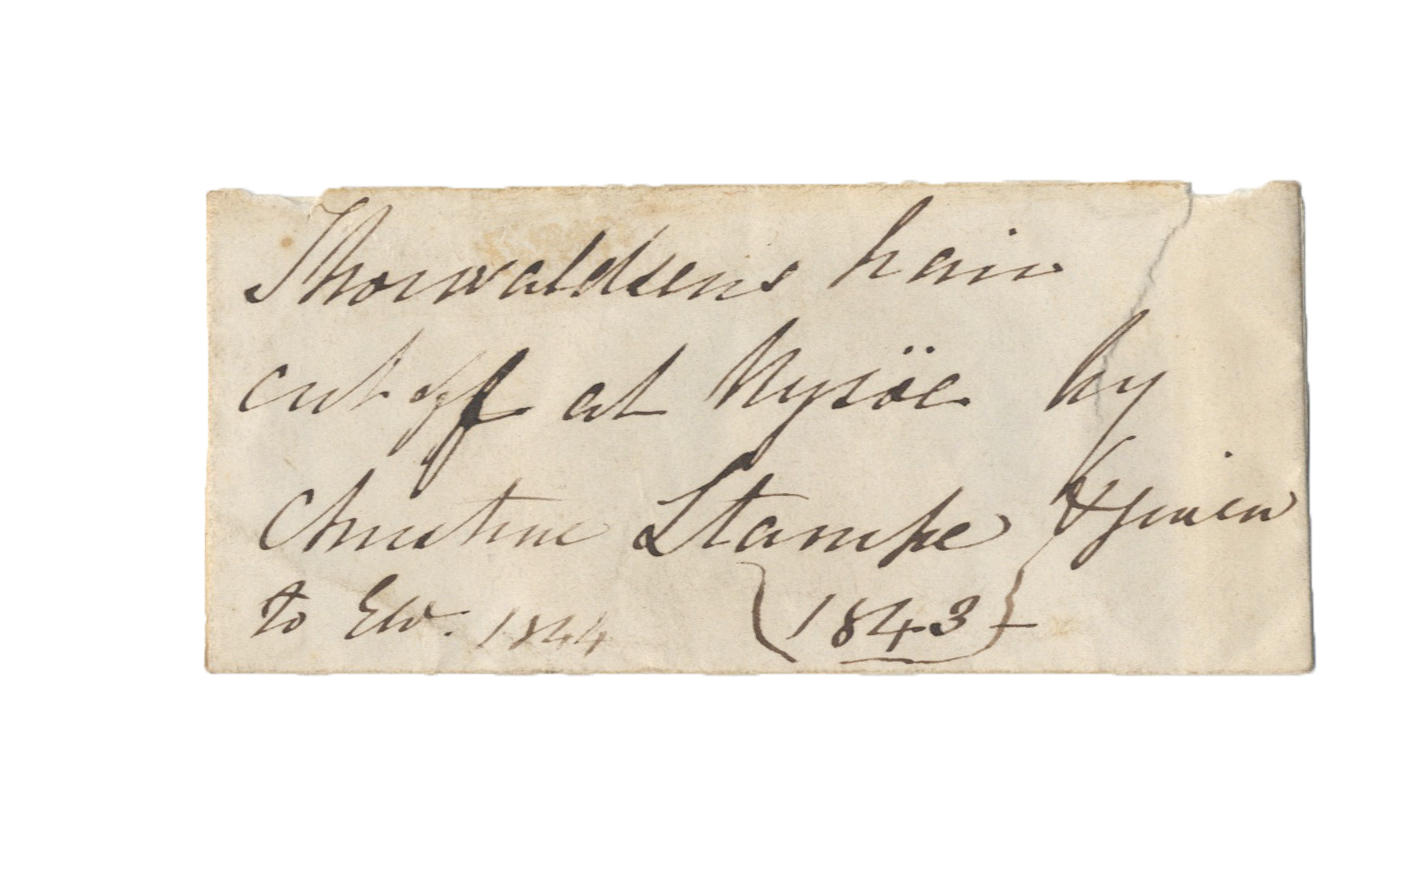 Thorwaldsens hair
cut off at Nysöe by
Christine Stampe & given
to EW. 1844 (1843)